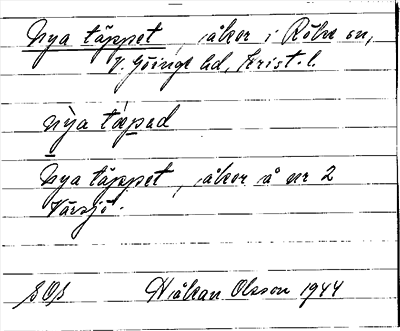 Nya täppet, åker i Röke sn,
V. Göinge hd, Krist. l.
nỳa tæpəd
Nya täppet, åker å nr 2
Värsjö.
SOß Håkan Olsson 1944